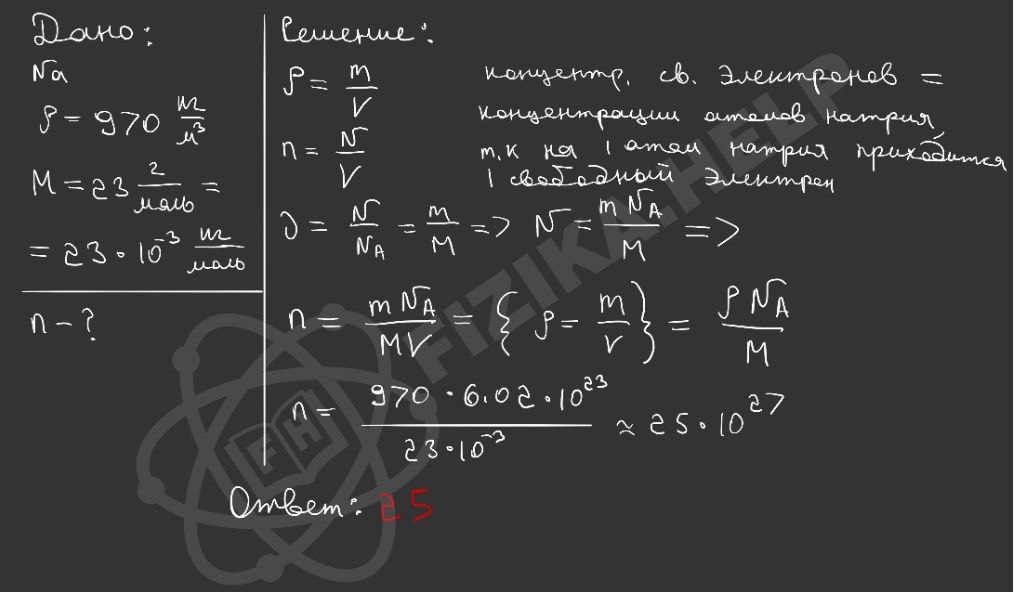 Дано:
Na
ρ = 970 кг/м³
M = 23 г/моль =
= 23 · 10⁻³ кг/моль
n - ?
Решение:
ρ = m/V
n = N/V
концентр. св. электронов =
концентрации атомов натрия,
т.к на 1 атом натрия приходится
1 свободный электрон
ν = N/N_A = m/M => N = m N_A/M =>
n = m N_A/MV = { ρ = m/V } = ρ N_A/M
n = 970 · 6.02 · 10²³/23 · 10⁻³ ≈ 25 · 10²⁷
Ответ: 25
FIZIKA.HELP
FH